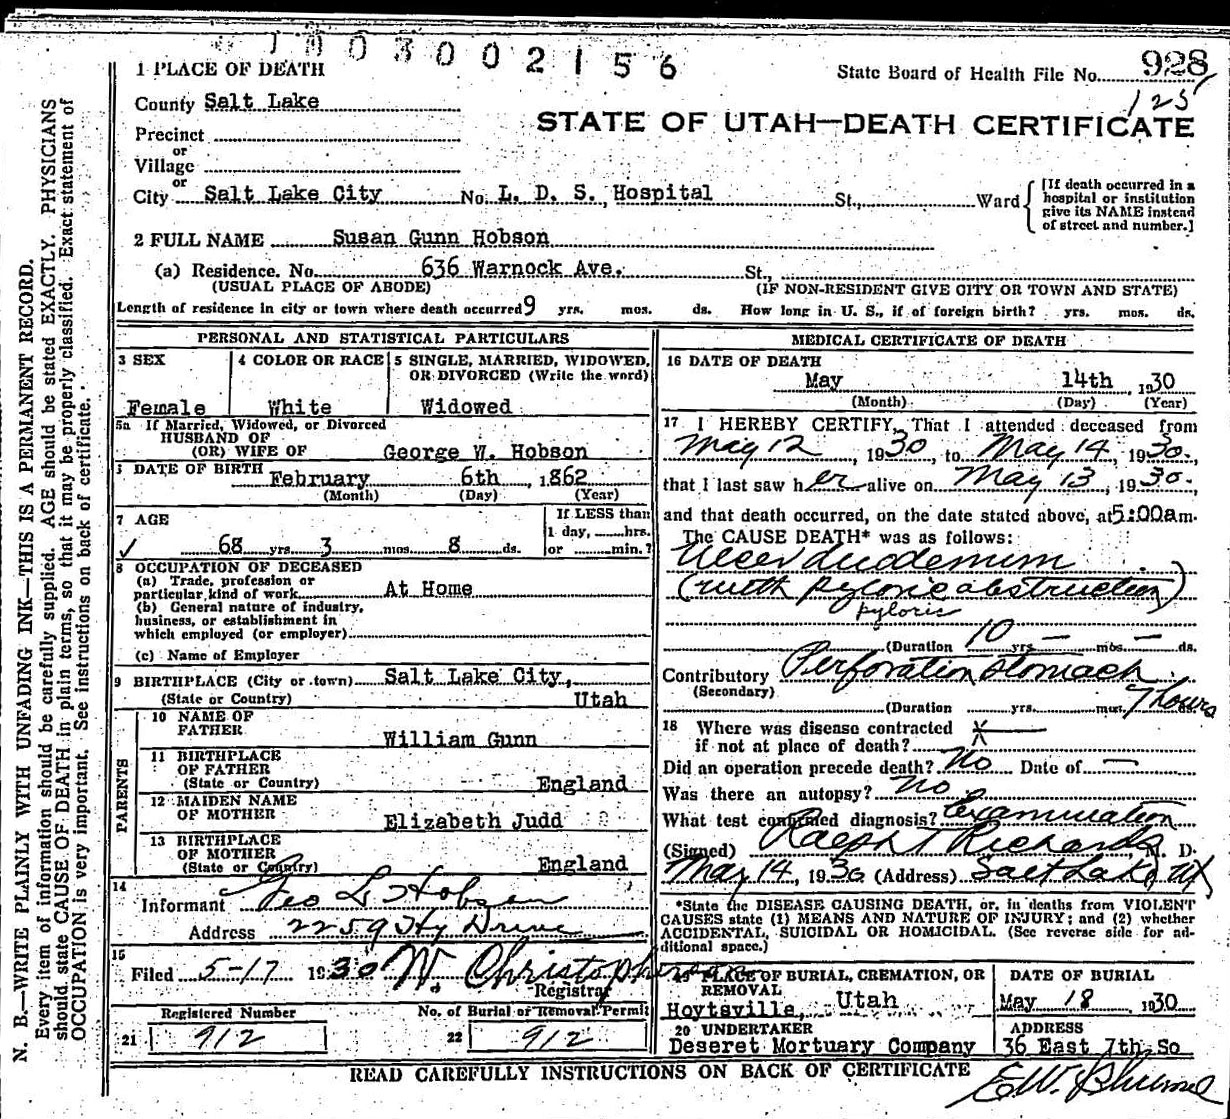 1003002156
928
State Board of Health File No.
125
1 PLACE OF DEATH
County Salt Lake
STATE OF UTAH—DEATH CERTIFICATE
Precinct
or
Village
or
City Salt Lake City No. L. D. S. Hospital St., Ward
[If death occurred in a
hospital or institution
give its NAME instead
of street and number.]
2 FULL NAME Susan Gunn Hobson
(a) Residence. No. 636 Warnock Ave. St.,
(USUAL PLACE OF ABODE) (IF NON-RESIDENT GIVE CITY OR TOWN AND STATE)
Length of residence in city or town where death occurred 9 yrs. mos. ds. How long in U. S., if of foreign birth? yrs. mos. ds.
PERSONAL AND STATISTICAL PARTICULARS
3 SEX
Female
4 COLOR OR RACE
White
5 SINGLE, MARRIED, WIDOWED,
OR DIVORCED (Write the word)
Widowed
5a If Married, Widowed, or Divorced
HUSBAND OF
(OR) WIFE OF George W. Hobson
DATE OF BIRTH February 6th, 1862
(Month) (Day) (Year)
7 AGE
68 yrs. 3 mos. 8 ds.
If LESS than
1 day, hrs.
or min.?
8 OCCUPATION OF DECEASED
(a) Trade, profession or
particular kind of work At Home
(b) General nature of industry,
business, or establishment in
which employed (or employer)
(c) Name of Employer
9 BIRTHPLACE (City or town) Salt Lake City,
(State or Country) Utah
PARENTS
10 NAME OF
FATHER William Gunn
11 BIRTHPLACE
OF FATHER
(State or Country) England
12 MAIDEN NAME
OF MOTHER Elizabeth Judd
13 BIRTHPLACE
OF MOTHER
(State or Country) England
14
Informant Geo L Hobson
Address 2259 Hy Drive
15
Filed 5-17 1930 W. Christopherson
Registrar
Registered Number No. of Burial or Removal Permit
21 912 22 912
MEDICAL CERTIFICATE OF DEATH
16 DATE OF DEATH
May 14th 1930
(Month) (Day) (Year)
17 I HEREBY CERTIFY, That I attended deceased from
May 12, 1930, to May 14, 1930.,
that I last saw her alive on May 13, 1930.
and that death occurred, on the date stated above, at 5:00am.
The CAUSE DEATH* was as follows:
Ulcer duodenum
(with pyloric obstruction)
pyloric
(Duration 10 yrs. — mos. — ds.
Contributory Perforation stomach
(Secondary)
(Duration yrs. mos. 7 hours ds.
18 Where was disease contracted
if not at place of death?
Did an operation precede death? No Date of —
Was there an autopsy? No
What test confirmed diagnosis? Examination
(Signed) Ralph T Richards M. D.
May 14, 1930 (Address) Salt Lake Ut
*State the DISEASE CAUSING DEATH, or, in deaths from VIOLENT
CAUSES state (1) MEANS AND NATURE OF INJURY; and (2) whether
ACCIDENTAL, SUICIDAL OR HOMICIDAL. (See reverse side for ad-
ditional space.)
19 PLACE OF BURIAL, CREMATION, OR
REMOVAL
Hoytsville, Utah
DATE OF BURIAL
May 18 1930
20 UNDERTAKER
Deseret Mortuary Company
ADDRESS
36 East 7th So
READ CAREFULLY INSTRUCTIONS ON BACK OF CERTIFICATE
N. B.—WRITE PLAINLY WITH UNFADING INK—THIS IS A PERMANENT RECORD.
Every item of information should be carefully supplied. AGE should be stated EXACTLY. PHYSICIANS
should state CAUSE OF DEATH in plain terms, so that it may be properly classified. Exact statement of
OCCUPATION is very important. See instructions on back of certificate.